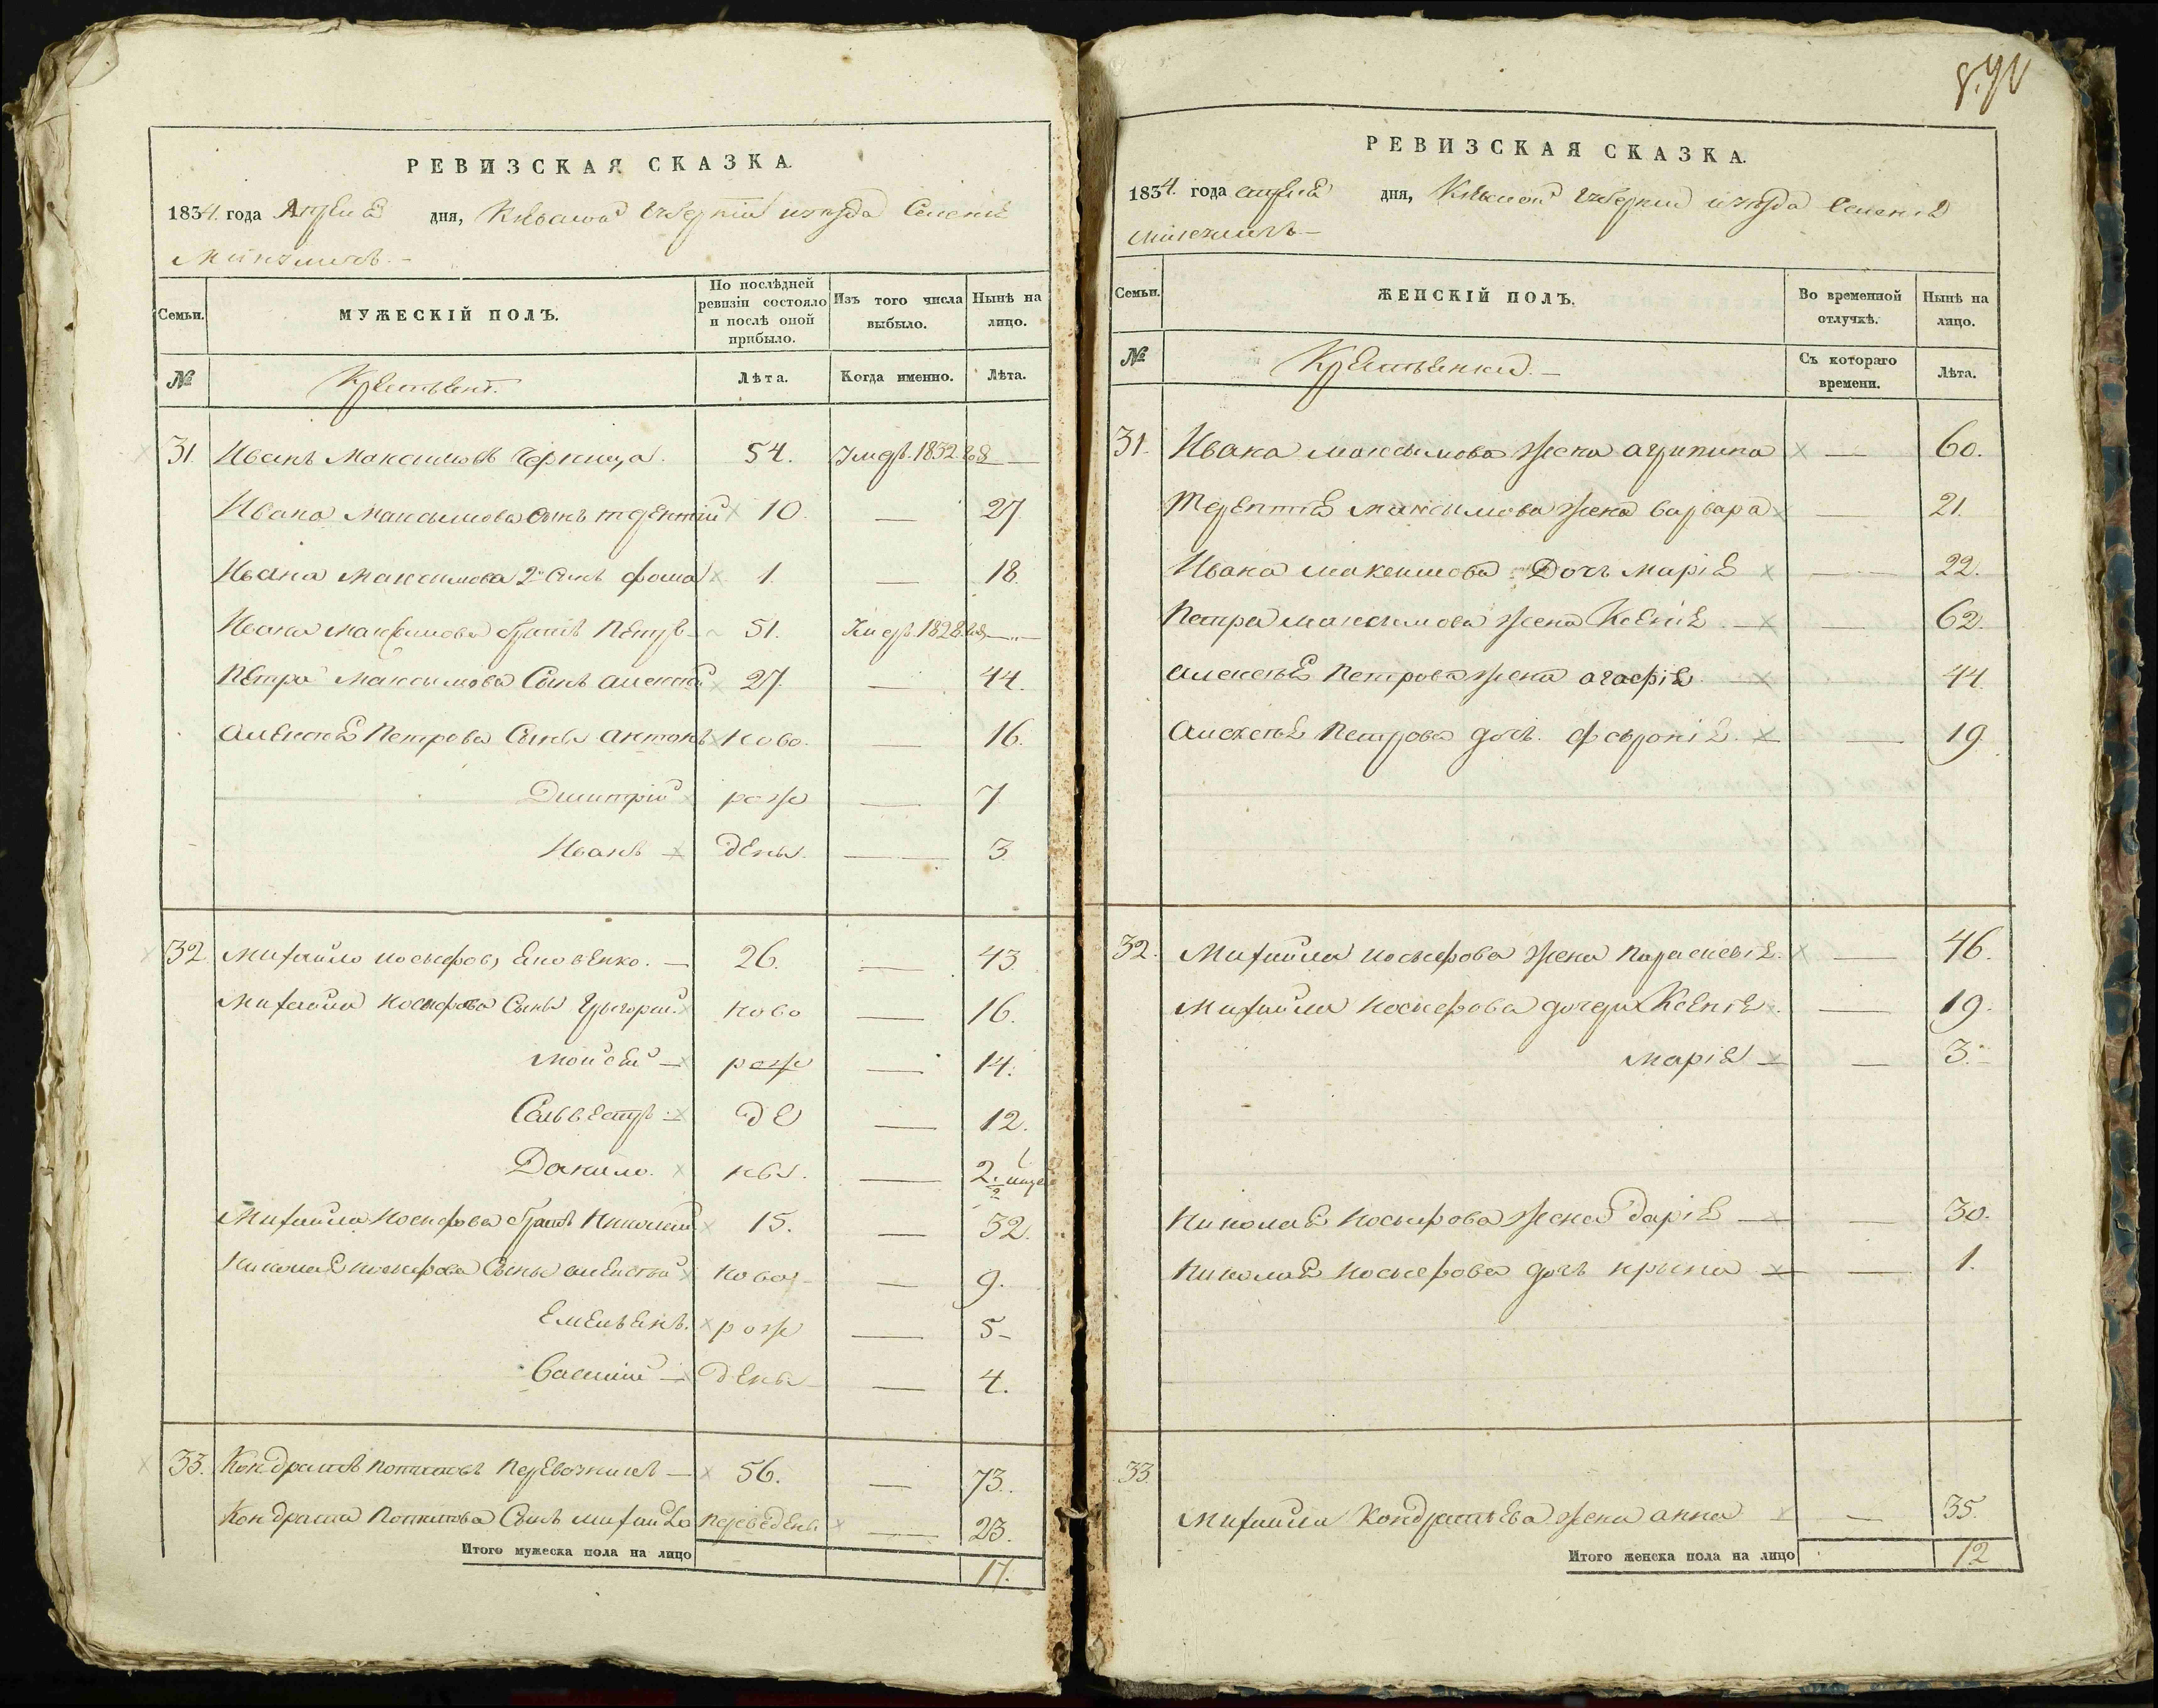 РЕВИЗСКАЯ СКАЗКА.
1834. года Апреля дня, Кіевской Губерніи уезда Селенія
Семьи.
МУЖЕСКІЙ ПОЛЪ.
По послѣдней ревизіи состояло и послѣ оной прибыло.
Изъ того числа выбыло.
Нынѣ на лицо.
№
Крестьяне.
Лѣта.
Когда именно.
Лѣта.
31. Иванъ Максимовъ 54. 1832. —
Ивана Максимова Сынъ терентій 10. — 27
Ивана Максимова 2й Сынъ фома 1. — 18.
Ивана Максимова братъ Петръ 51. 1828. —
Петра Максимова Сынъ алексей 27. — 44.
алексея Петрова Сыны антонъ ново — 16.
Дмитрій рож — 7
Иванъ — дены. — 3.
32. Михайло иосифовъ — 26. — 43.
Михайла иосифова Сыны Григорій ново — 16.
Мойсей — рож — 14.
Сильвестръ — де — 12.
Данило. ны. — 2.
Михайла иосифова братъ Николай 15. — 32.
Николая иосифова Сыны алексей ново — 9.
Емельянъ. рож — 5 –
Василій — дены — 4.
33. Кондратъ Перевозникъ — 56. — 73.
Кондрата Сынъ михайло — 23.
Итого мужеска пола на лицо 17.
РЕВИЗСКАЯ СКАЗКА.
1834. года апреля дня, Кіевской Губерніи уезда Селенія
Семьи.
ЖЕНСКІЙ ПОЛЪ.
Во временной отлучкѣ.
Нынѣ на лицо.
№
Крестьянки. —
Съ котораго времени.
Лѣта.
31. Ивана максимова жена агрипина — 60.
терентія максимова жена варвара — 21.
Ивана максимова Дочь марія — 22.
Петра максимова жена Ксенія — 62.
алексея Петрова жена агафія — 44.
алексея Петрова дочь феврония — 19
32. Михайла иосифова жена параскевія — 46.
Михайла иосифова дочери Ксенія — 19.
марія — 3.
Николая иосифова жена дарія — 30.
Николая иосифова дочь ирина — 1.
33.
Михайла Кондратьева жена анна — 35.
Итого женска пола на лицо 12